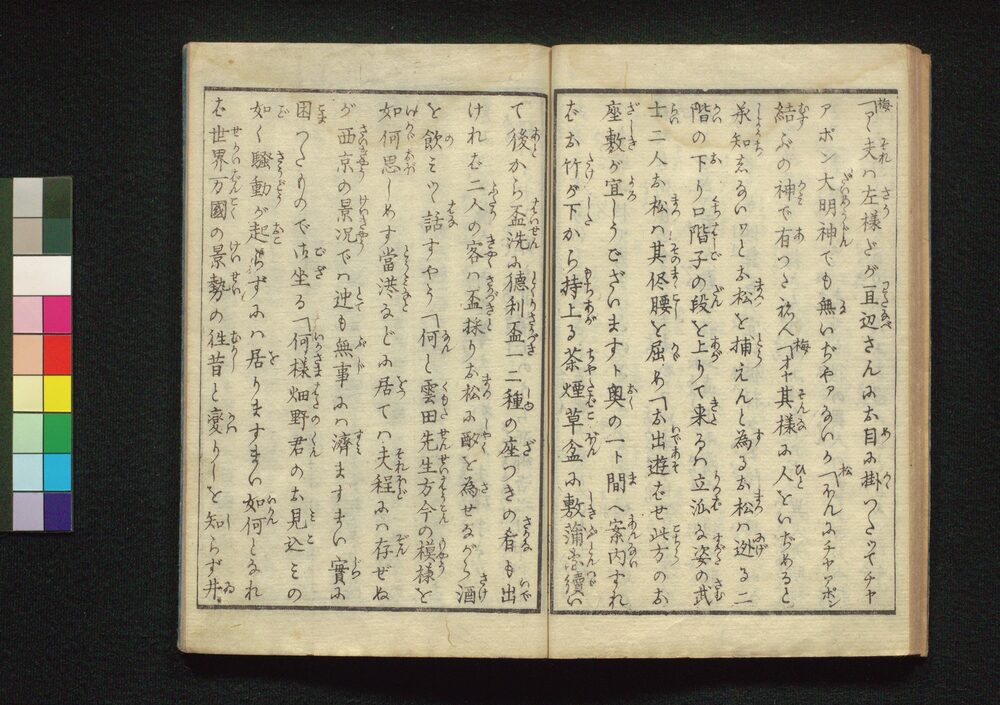 梅「アヽ夫ハ左様だが亘辺さんにお目に掛つたつてチヤ
アポン大明神でも無いぢやアないか松「ほんにチヤアポン
結ぶの神で有つたねへ梅「オヤ其様に人をいぢめると
承知しないヨとお松を捕えんと為るお松ハ迯る二
階の下り口階子の段を上りて来るハ立派な姿の武
士二人お松ハ其侭腰を屈め「お出遊ばせ此方のお
座敷が宜しうございますト奥の一ト間へ案内すれ
ばお竹が下から持上る茶煙草盆に敷蒲団續い
て後から盃洗に徳利盃一二種の座つきの肴も出
けれバ二人の客ハ盃採りお松に酌を為せながら酒
を飲ミツヽ話すやう「何と雲田先生方今の模様を
如何思しめす當港などに居てハ夫程にハ存ぜぬ
が西京の景况でハ迚も無事にハ濟ますまい實に
困つたもので御坐る「何様畑野君のお見込ミの
如く騒動が起らずにハ居りますまい如何となれ
ば世界万國の景勢の徃昔と變りしを知らず井